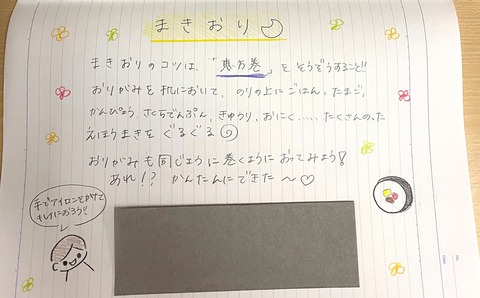 まきおり
まきおりのコツは、「恵方巻」をそうぞうすること!!
おりがみを机において、のりの上にごはん、たまご、
かんぴょう、さくらでんぶん、きゅうり、おにく……たくさんのった
えほうまきを ぐるぐる
おりがみも同じように巻くようにおってみよう!
あれ!? かんたんにできた〜♡
手でアイロンをかけて
キレイにおろう!!